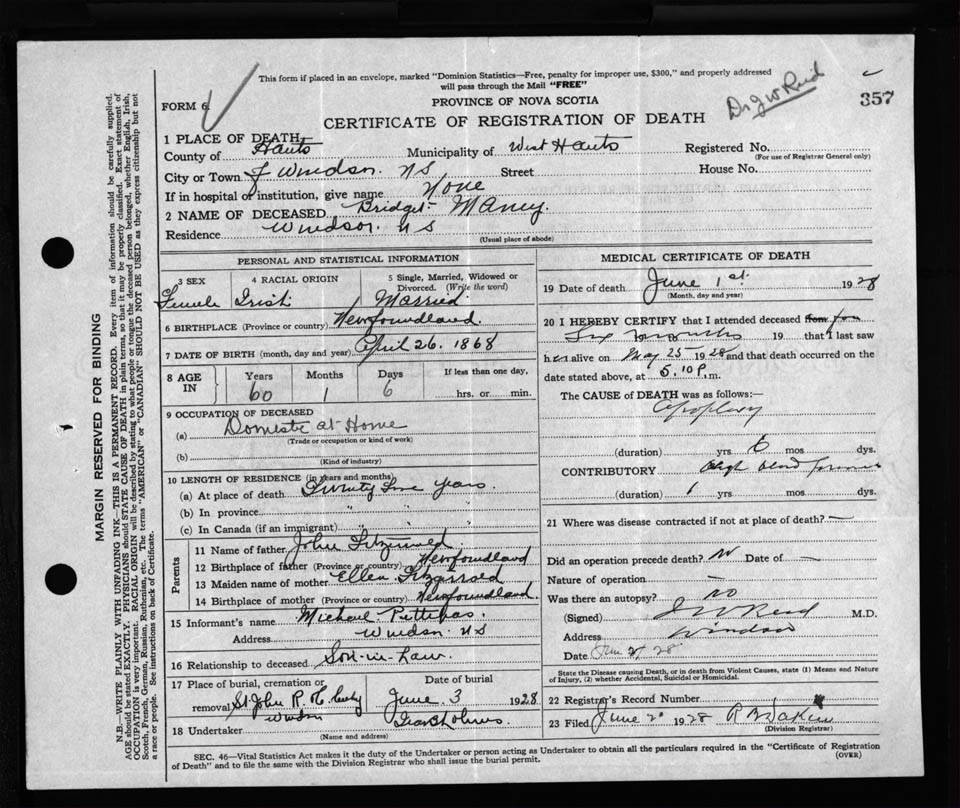 This form if placed in an envelope, marked "Dominion Statistics—Free, penalty for improper use, $300," and properly addressed
will pass through the Mail "FREE"
Dr J W Reid
357
FORM 6
PROVINCE OF NOVA SCOTIA
CERTIFICATE OF REGISTRATION OF DEATH
1 PLACE OF DEATH
County of Hants Municipality of West Hants Registered No.
(For use of Registrar General only)
City or Town of Windsor. NS Street House No.
If in hospital or institution, give name None
2 NAME OF DECEASED Bridget Maney.
Residence Windsor. NS
(Usual place of abode)
PERSONAL AND STATISTICAL INFORMATION
3 SEX 4 RACIAL ORIGIN 5 Single, Married, Widowed or
Divorced. (Write the word)
Female Irish Married
6 BIRTHPLACE (Province or country) Newfoundland.
7 DATE OF BIRTH (month, day and year) April 26. 1868
8 AGE IN Years Months Days If less than one day,
60 1 6 hrs. or min.
9 OCCUPATION OF DECEASED
(a) Domestic at Home
(Trade or occupation or kind of work)
(b)
(Kind of industry)
10 LENGTH OF RESIDENCE (in years and months)
(a) At place of death Twenty years.
(b) In province " "
(c) In Canada (if an immigrant) " " "
Parents
11 Name of father John
12 Birthplace of father (Province or country) Newfoundland
13 Maiden name of mother Ellen
14 Birthplace of mother (Province or country) Newfoundland.
15 Informant's name Michael
Address Windsor. NS
16 Relationship to deceased Son-in-Law.
17 Place of burial, cremation or Date of burial
removal St. John R. June 3 1928
Windsor
18 Undertaker
(Name and address)
MEDICAL CERTIFICATE OF DEATH
19 Date of death June 1st. 1928
(Month, day and year)
20 I HEREBY CERTIFY that I attended deceased from for
Six months 19 that I last saw
her alive on May 25 1928 and that death occurred on the
date stated above, at 5.10 P. m.
The CAUSE of DEATH was as follows:—
Apoplexy
(duration) yrs 6 mos dys.
CONTRIBUTORY High blood pressure
(duration) 1 yrs mos dys.
21 Where was disease contracted if not at place of death? —
Did an operation precede death? No Date of —
Nature of operation —
Was there an autopsy? No
(Signed) J W Reid M.D.
Address Windsor
Date 28
State the Disease causing Death, or in death from Violent Causes, state (1) Means and Nature
of Injury, (2) whether Accidental, Suicidal or Homicidal.
22 Registrar's Record Number
23 Filed June 2 1928
(Division Registrar)
SEC. 46—Vital Statistics Act makes it the duty of the Undertaker or person acting as Undertaker to obtain all the particulars required in the "Certificate of Registration
of Death" and to file the same with the Division Registrar who shall issue the burial permit.
(OVER)
MARGIN RESERVED FOR BINDING
N.B.—WRITE PLAINLY WITH UNFADING INK—THIS IS A PERMANENT RECORD. Every item of information should be carefully supplied.
AGE should be stated EXACTLY. PHYSICIANS should STATE CAUSE OF DEATH in plain terms, so that it may be properly classified. Exact statement of
OCCUPATION is very important. RACIAL ORIGIN will be described by stating to what people or tongue the deceased person belonged, whether English, Irish,
Scotch, French, German, Russian, Ruthenian, etc. The terms "AMERICAN" or "CANADIAN" SHOULD NOT BE USED as they express citizenship but not
a race or people. See instructions on back of Certificate.